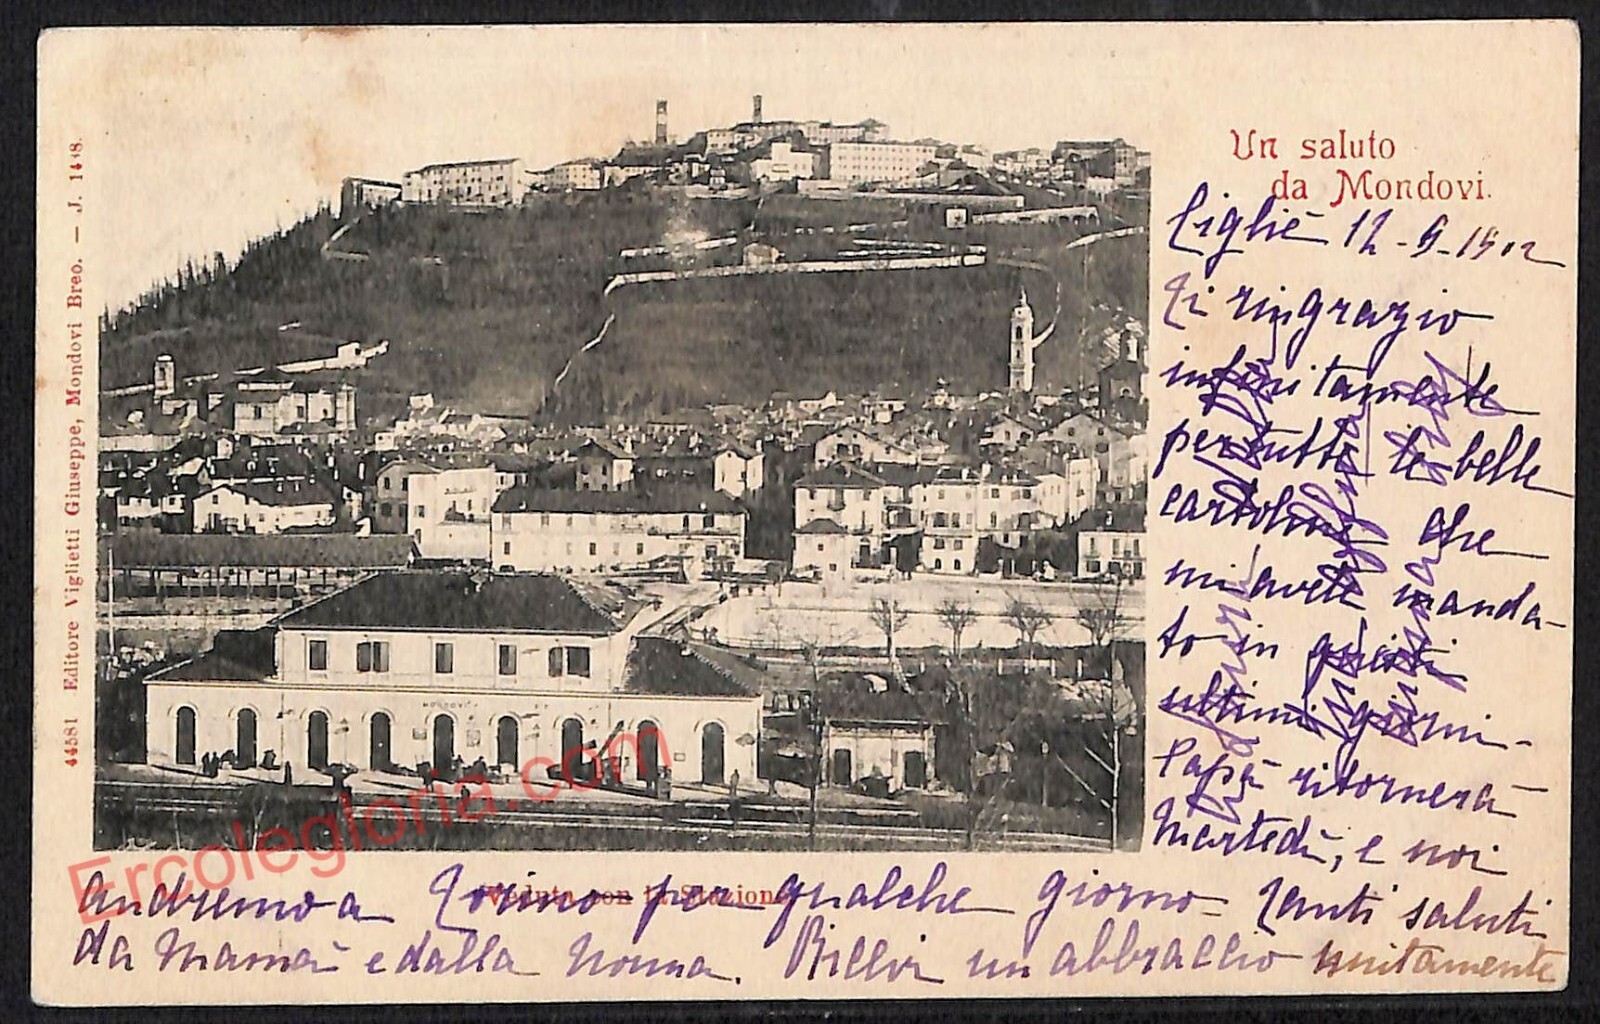 Un saluto
da Mondovi.
Ciglié 12-9-1902
Ti ringrazio
infinitamente
per tutte le belle
cartoline che
mi avete manda-
to in questi
ultimi giorni-
Papà ritornerà
Martedì, e noi
andremo a Torino per qualche giorno- Tanti saluti
da Mamà e dalla Nonna. Ricevi un abbraccio unitamente
Veduta con la Stazione
44581 Editore Viglietti Giuseppe, Mondovi Breo. — J.
MONDOVI
Ercolegloria.com